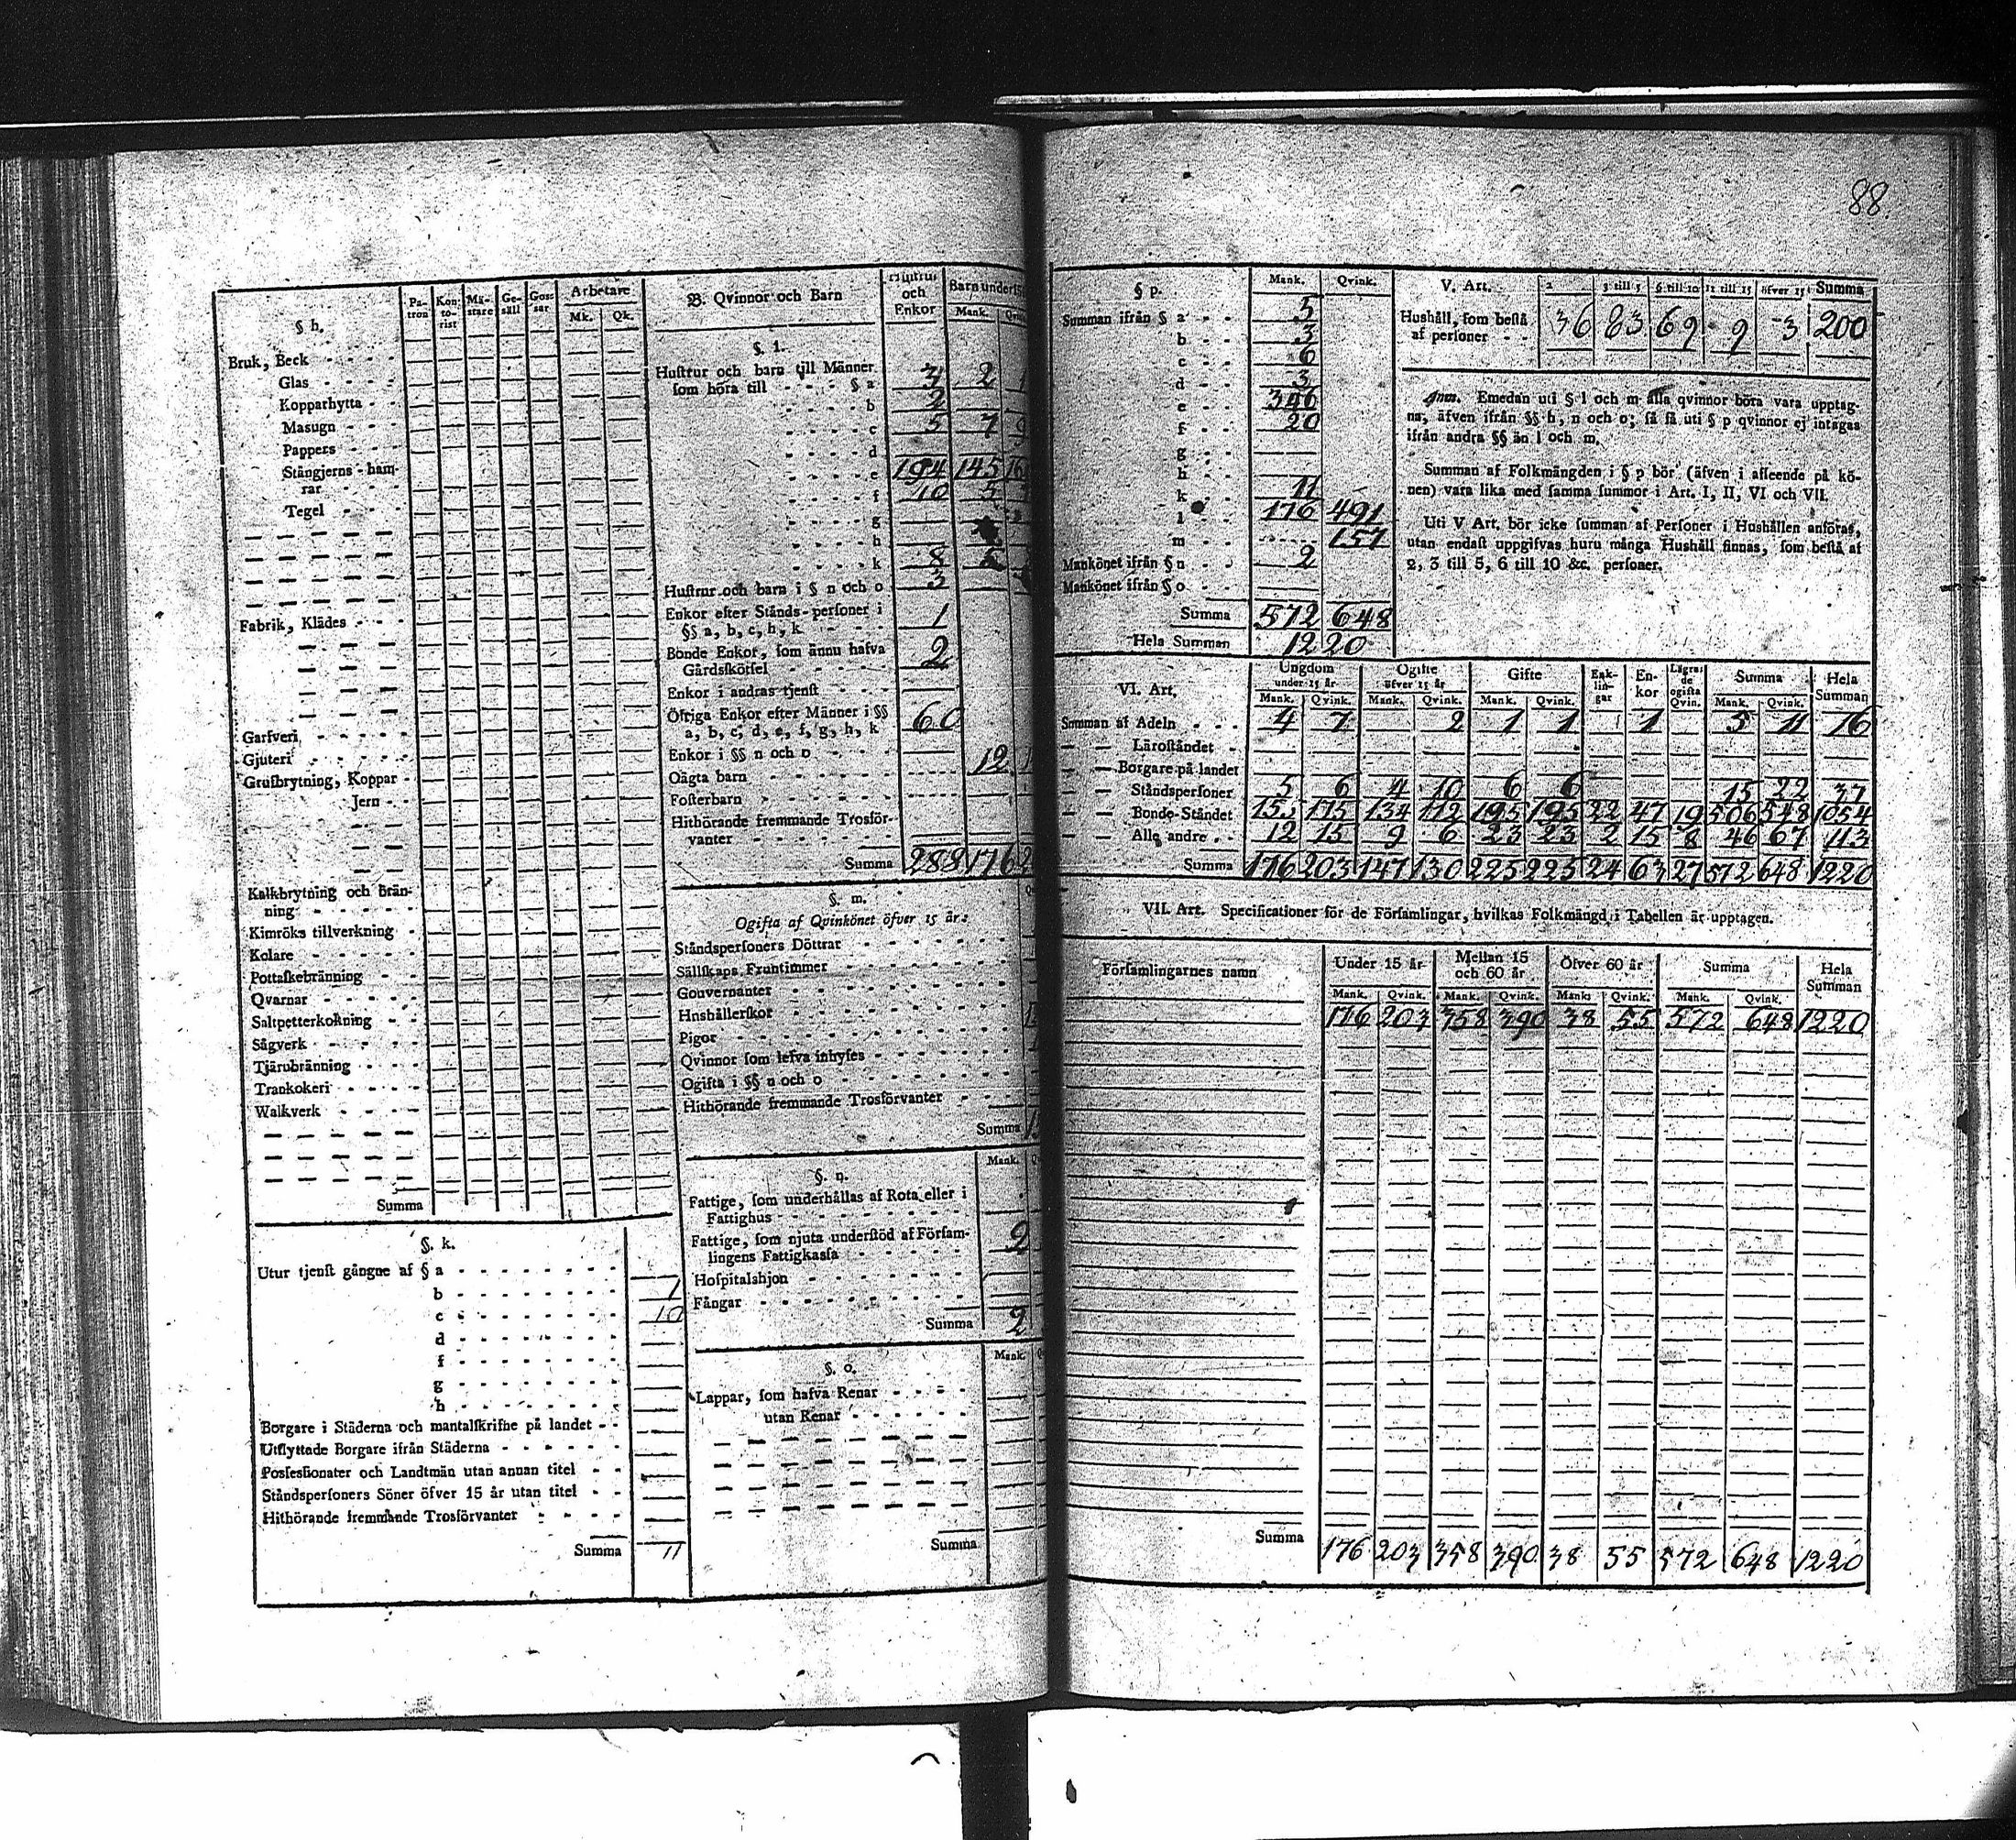 88
§ h.
Pa- tron Kon- to- rist Mä- stare Ge- säll Gos- sar Arbetare
Mk. Qk.
Bruk, Beck - - - -
Glas - - - -
Kopparhytta - -
Masugn - - -
Pappers - - -
Stångjerns-ham-
rar - - -
Tegel - - -
Fabrik, Klädes - - -
Garfveri - - - -
Gjuteri - - - -
Grufbrytning, Koppar -
Jern - -
Kalkbrytning och Brän-
ning - - - -
Kimröks tillverkning -
Kolare - - - -
Pottaskebränning - -
Qvarnar - - - -
Saltpetterkokning - -
Sågverk - - - -
Tjärubränning - - -
Trankokeri - - - -
Walkverk - - - -
Summa
§. k.
Utur tjenst gångne af § a - - - - - - -
b - - - - - - - 1
c - - - - - - - 10
d - - - - - - -
f - - - - - - -
g - - - - - - -
h - - - - - - -
Borgare i Städerna och mantalskrifne på landet - -
Utflyttade Borgare ifrån Städerna - - - - -
Possessionater och Landtmän utan annan titel - -
Ståndspersoners Söner öfver 15 år utan titel - -
Hithörande fremmande Trosförvanter - - - -
Summa 11
B. Qvinnor och Barn
och
Enkor
Barn under 15
Mank.
§. l.
Hustrur och barn till Männer
som höra till - - - § a 3 2 1
b 2
c 5 7 9
d
e 194 145
f 10 5
g
h
k 8 5
Hustrur och barn i § n och o 3
Enkor efter Stånds-personer i
§§ a, b, c, h, k - - - 1
Bonde Enkor, som ännu hafva
Gårdskötsel - - - - 2
Enkor i andras tjenst - - -
Öfriga Enkor efter Männer i §§
a, b, c, d, e, f, g, h, k 60
Enkor i §§ n och o - - -
Oägta barn - - - - - 12
Fosterbarn - - - - -
Hithörande fremmande Trosför-
vanter - - - - -
Summa 288 176
§. m.
Ogifta af Qvinkönet öfver 15 år.
Ståndspersoners Döttrar - - - - - -
Sällskaps Fruntimmer - - - - - -
Gouvernanter - - - - - - -
Hushållerskor - - - - - - -
Pigor - - - - - - - -
Qvinnor som lefva inhyses - - - - -
Ogifta i §§ n och o - - - - - -
Hithörande fremmande Trosförvanter - - -
Summa
§. n.
Mank.
Fattige, som underhållas af Rota eller i
Fattighus - - - - - - -
Fattige, som njuta understöd af Försam-
lingens Fattigkassa - - - - - 2
Hospitalshjon - - - - - -
Fångar - - - - - - -
Summa 2
§. o.
Mank.
Lappar, som hafva Renar - - - -
utan Renar - - - - -
Summa
§ p.
Mank. Qvink.
Summan ifrån § a - - 5
b - - 3
c - - 6
d - - 3
e - - 346
f - - 20
g - -
h - -
k - - 11
l - - 176 491
m - - 157
Mankönet ifrån § n - - 2
Mankönet ifrån § o - -
Summa 572 648
Hela Summan 1220
V. Art.
2 3 till 5 6 till 10 11 till 15 öfver 15 Summa
Hushåll, som bestå
af personer - - 36 83 69 9 3 200
Anm. Emedan uti § l och m alla qvinnor böra vara upptag-
na, äfven ifrån §§ h, n och o; så få uti § p qvinnor ej intagas
ifrån andra §§ än l och m.
Summan af Folkmängden i § p bör (äfven i afseende på kö-
nen) vara lika med samma summor i Art. I, II, VI och VII.
Uti V Art. bör icke summan af Personer i Hushållen anföras,
utan endast uppgifvas huru många Hushåll finnas, som bestå af
2, 3 till 5, 6 till 10 &c. personer.
VI. Art.
Ungdom under 15 år Ogifte öfver 15 år Gifte Enk- lin- gar En- kor Lägra- de ogifta Qvin. Summa Hela Summan
Mank. Qvink. Mank. Qvink. Mank. Qvink. Mank. Qvink.
Summan af Adeln - - - 4 7 2 1 1 1 5 11 16
— — Läroståndet -
— — Borgare på landet
— — Ståndspersoner 5 6 4 10 6 6 15 22 37
— — Bonde-Ståndet 155 175 134 112 195 195 22 47 19 506 548 1054
— — Alle andre - - 12 15 9 6 23 23 2 15 8 46 67 113
Summa 176 203 147 130 225 225 24 63 27 572 648 1220
VII. Art. Specificationer för de Församlingar, hvilkas Folkmängd i Tabellen är upptagen.
Församlingarnes namn
Under 15 år Mellan 15 och 60 år Öfver 60 år Summa Hela Summan
Mank. Qvink. Mank. Qvink. Mank. Qvink. Mank. Qvink.
176 203 358 390 38 55 572 648 1220
Summa 176 203 358 390 38 55 572 648 1220